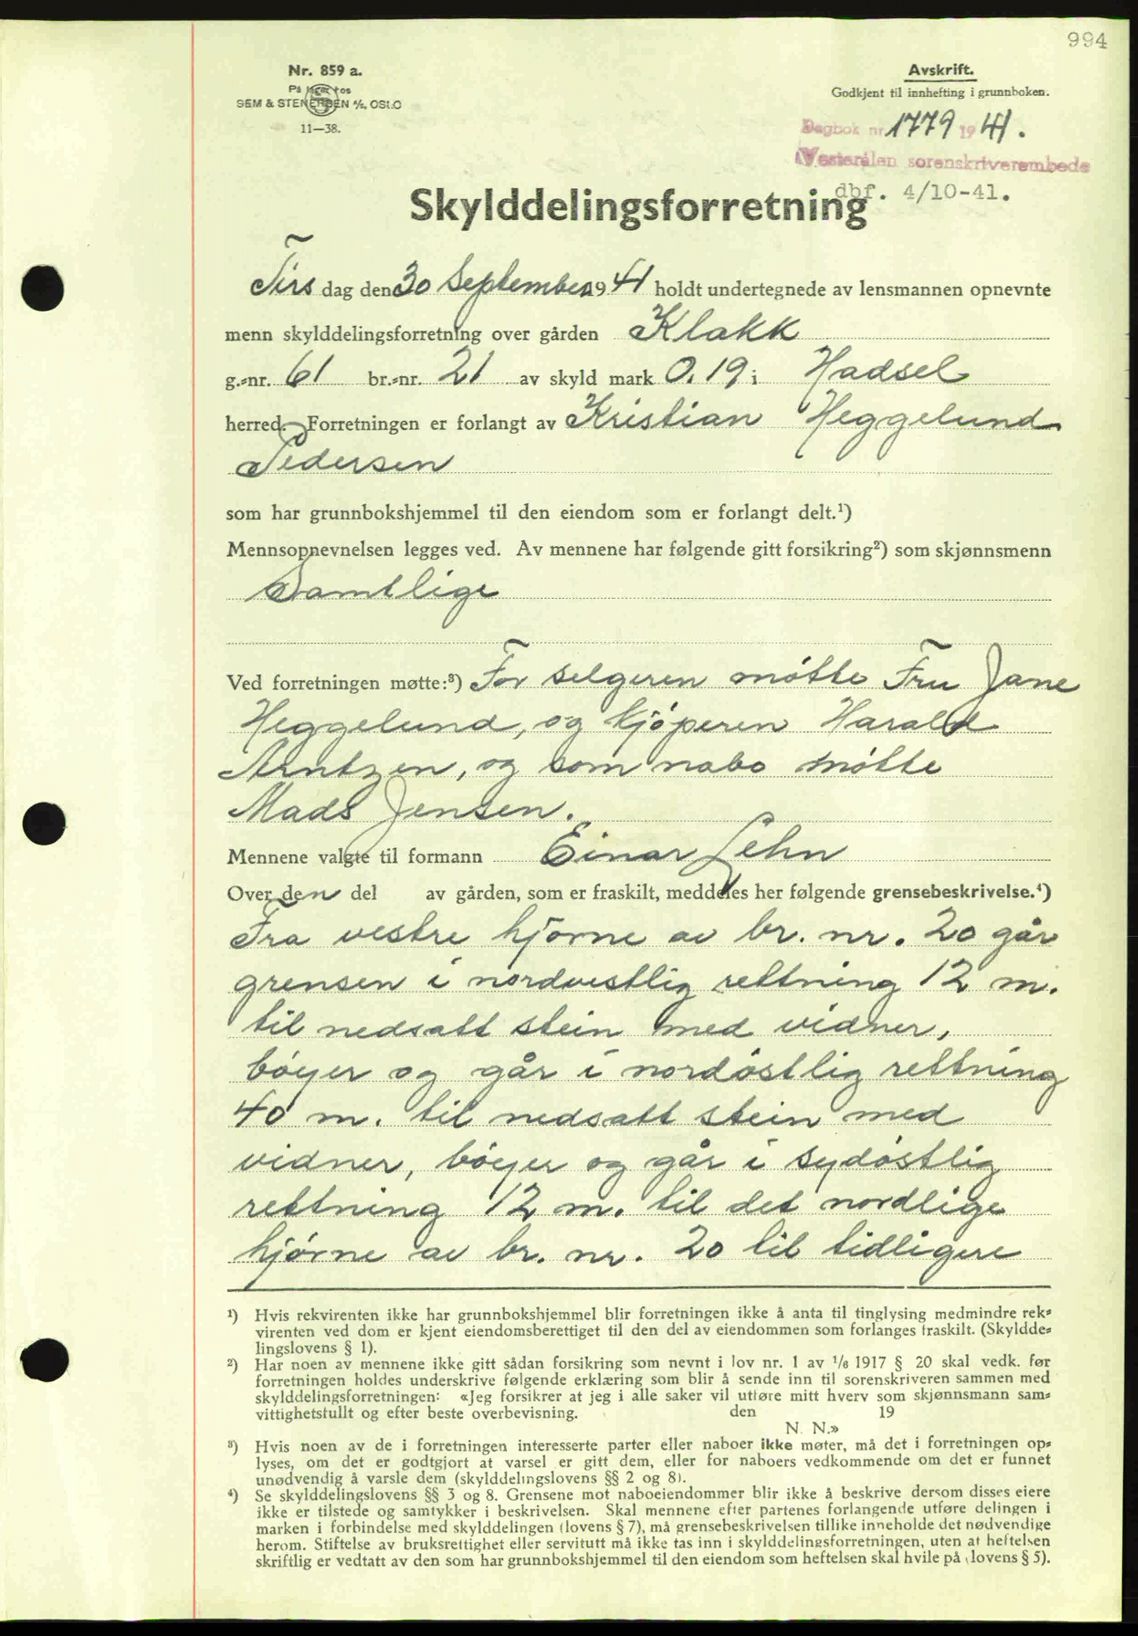 994
Nr. 859 a.
På lager hos
SEM & STENERSEN A/S, OSLO
11—38.
Avskrift.
Godkjent til innhefting i grunnboken.
Dagbok nr. 1779 1941.
Vesterålen sorenskriverembede
dbf. 4/10-41.
Skylddelingsforretning
Tirs dag den 30 September 1941 holdt undertegnede av lensmannen opnevnte
menn skylddelingsforretning over gården Klakk
g.-nr. 61 br.-nr. 21 av skyld mark 0.19 i Hadsel
herred. Forretningen er forlangt av Kristian Heggelund
Pedersen
som har grunnbokshjemmel til den eiendom som er forlangt delt.¹)
Mennsopnevnelsen legges ved. Av mennene har følgende gitt forsikring²) som skjønnsmenn
Samtlige
Ved forretningen møtte:³) For selgeren møtte Fru Jane
Heggelund, og kjøperen Harald
Arntzen, og som nabo møtte
Mads Jensen.
Mennene valgte til formann Einar Lehn
Over den del av gården, som er fraskilt, meddeles her følgende grensebeskrivelse.⁴)
Fra vestre hjørne av br. nr. 20 går
grensen i nordvestlig rettning 12 m.
til nedsatt stein med vidner,
bøyer og går i nordøstlig rettning
40 m. til nedsatt stein med
vidner, bøyer og går i sydøstlig
rettning 12 m. til det nordlige
hjørne av br. nr. 20 til tidligere
¹) Hvis rekvirenten ikke har grunnbokshjemmel blir forretningen ikke å anta til tinglysing medmindre rek-
virenten ved dom er kjent eiendomsberettiget til den del av eiendommen som forlanges fraskilt. (Skyldde-
lingslovens § 1).
²) Har noen av mennene ikke gitt sådan forsikring som nevnt i lov nr. 1 av 1/6 1917 § 20 skal vedk. før
forretningen holdes underskrive følgende erklæring som blir å sende inn til sorenskriveren sammen med
skylddelingsforretningen: «Jeg forsikrer at jeg i alle saker vil utføre mitt hverv som skjønnsmann sam-
vittighetsfullt og efter beste overbevisning. den 19
N. N.»
³) Hvis noen av de i forretningen interesserte parter eller naboer ikke møter, må det i forretningen op-
lyses, om det er godtgjort at varsel er gitt dem, eller for naboers vedkommende om det er funnet
unødvendig å varsle dem (skylddelingslovens §§ 2 og 8).
⁴) Se skylddelingslovens §§ 3 og 8. Grensene mot naboeiendommer blir ikke å beskrive dersom disses eiere
ikke er tilstede og samtykker i beskrivelsen. Skal mennene efter partenes forlangende utføre delingen i
marken i forbindelse med skylddelingen (lovens § 7), må grensebeskrivelsen tillike inneholde det nødvendige
herom. Stiftelse av bruksrettighet eller servitutt må ikke tas inn i skylddelingsforretningen, uten at heftelsen
skriftlig er vedtatt av den som har grunnbokshjemmel til den eiendom som heftelsen skal hvile på (lovens § 5).